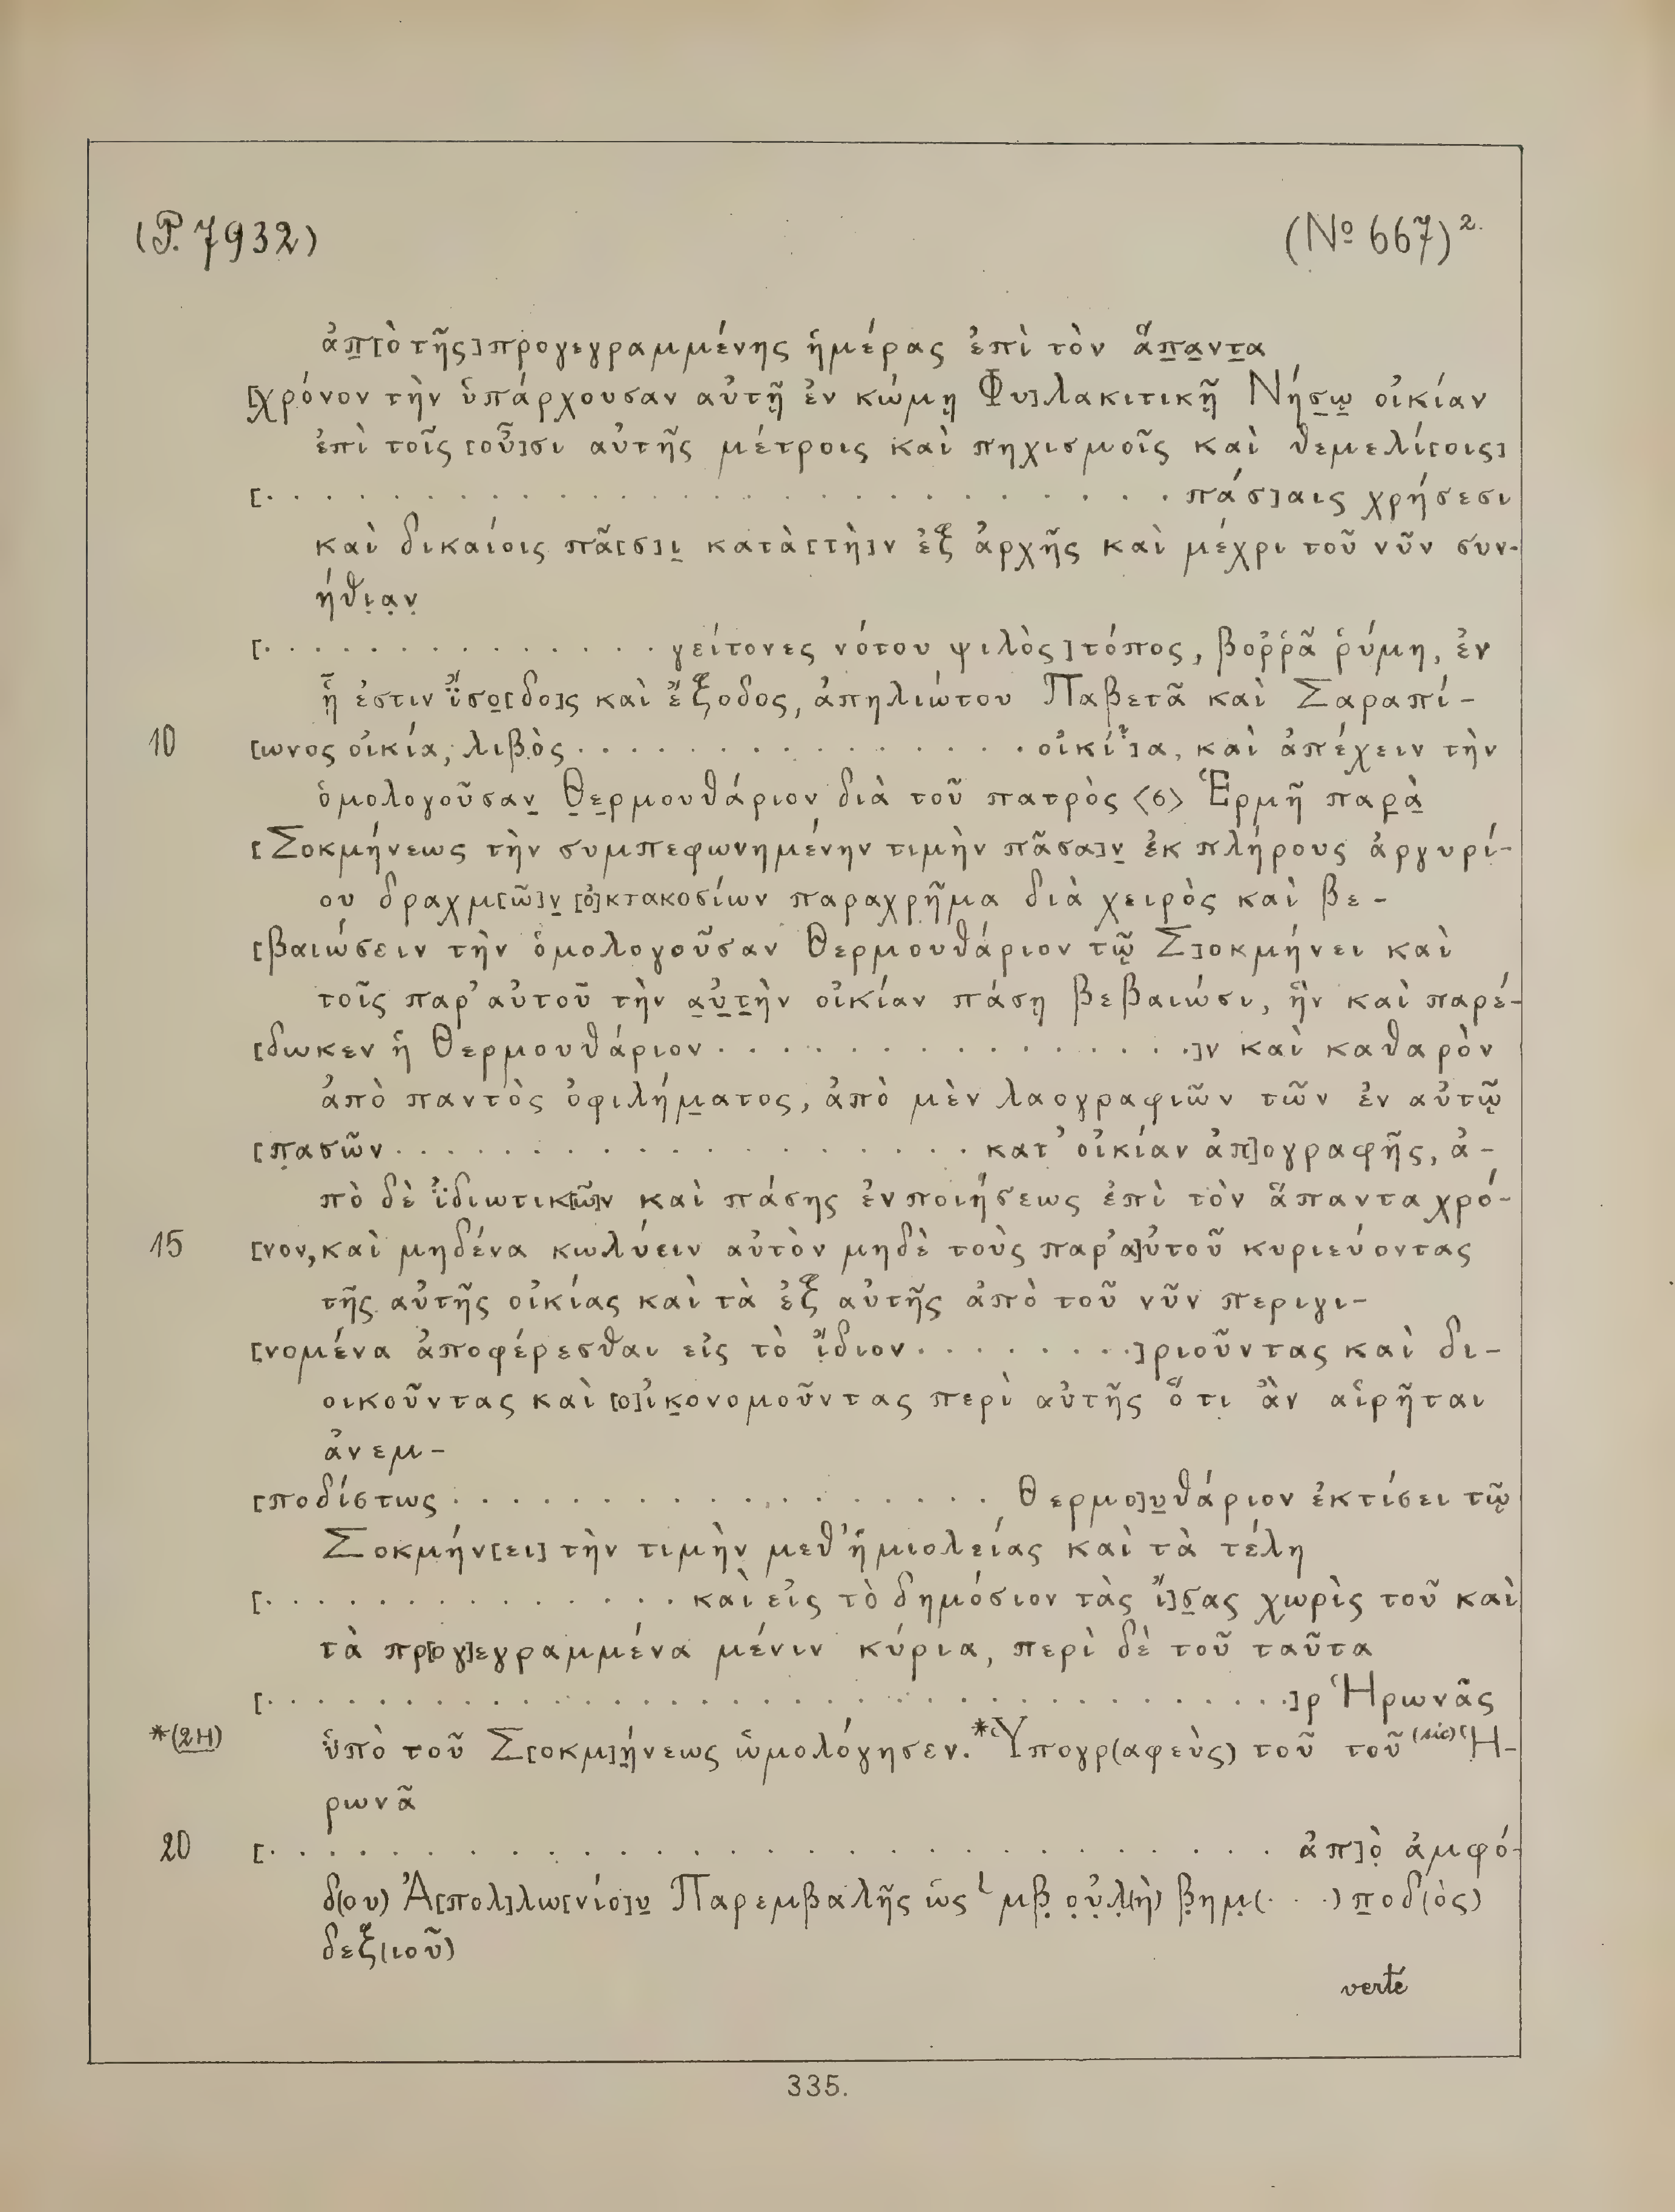 (P. 7932)
(№ 667)².
ἀπ[ὸ τῆς] προγεγραμμένης ἡμέρας ἐπὶ τὸν ἅπαντα
[χρόνον τὴν ὑπάρχουσαν αὐτῇ ἐν κώμῃ Φυ]λακιτικῇ Νήσῳ οἰκίαν
ἐπὶ τοῖς [οὖ]σι αὐτῆς μέτροις καὶ πηχισμοῖς καὶ θεμελί[οις]
[. . . . . . . . . . . . . . . . . . . . . . . . πάσ]αις χρήσεσι
καὶ δικαίοις πᾶ[σ]ι κατὰ [τὴ]ν ἐξ ἀρχῆς καὶ μέχρι τοῦ νῦν συν-
ήθι̣α̣ν̣
[. . . . . . . . . . . . γείτονες νότου ψιλὸς] τόπος, βοῤῥᾶ ῥύμη, ἐν
ᾗ ἐστιν ἴ̈σο[δο]ς καὶ ἔξοδος, ἀπηλιώτου Παβετᾶ καὶ Σαραπί-
10 [ωνος οἰκία, λιβὸς . . . . . . . . . . . . . . οἰκί"]α, καὶ ἀπέχειν τὴν
ὁμολογοῦσαν Θερμουθάριον διὰ τοῦ πατρὸς <σ> Ἑρμῆ παρὰ
[Σοκμήνεως τὴν συμπεφωνημένην τιμὴν πᾶσα]ν ἐκ πλήρους ἀργυρί-
ου δραχμ[ῶ]ν [ὀ]κτακοσίων παραχρῆμα διὰ χειρὸς καὶ βε-
[βαιώσειν τὴν ὁμολογοῦσαν Θερμουθάριον τῷ Σ]οκμήνει καὶ
τοῖς παρ' αὐτοῦ τὴν αὐτὴν οἰκίαν πάσῃ βεβαιώσι, ἣν καὶ παρέ-
[δωκεν ἡ Θερμουθάριον . . . . . . . . . . . . . .]ν καὶ καθαρὸν
ἀπὸ παντὸς ὀφιλήματος, ἀπὸ μὲν λαογραφιῶν τῶν ἐν αὐτῷ
[πασῶν . . . . . . . . . . . . . . . . κατ' οἰκίαν ἀπ]ογραφῆς, ἀ-
πὸ δὲ ἰ̈διωτικ[ῶ]ν καὶ πάσης ἐνποιήσεως ἐπὶ τὸν ἅπαντα χρό-
15 [νον, καὶ μηδένα κωλύειν αὐτὸν μηδὲ τοὺς παρ' α]ὐτοῦ κυριεύοντας
τῆς αὐτῆς οἰκίας καὶ τὰ ἐξ αὐτῆς ἀπὸ τοῦ νῦν περιγι-
[νομένα ἀποφέρεσθαι εἰς τὸ ἴδιον . . . . . . . .]ριοῦντας καὶ δι-
οικοῦντας καὶ [ο]ἰκονομοῦντας περὶ αὐτῆς ὅτι ἂν αἱρῆται
ἀνεμ-
[ποδίστως . . . . . . . . . . . . . . . . Θερμο]υθάριον ἐκτίσει τῷ
Σοκμήν[ει] τὴν τιμὴν μεθ' ἡμιολείας καὶ τὰ τέλη
[. . . . . . . . . . . . . καὶ εἰς τὸ δημόσιον τὰς ἴ]σας χωρὶς τοῦ καὶ
τὰ πρ[ογ]εγραμμένα μένιν κύρια, περὶ δὲ τοῦ ταῦτα
[. . . . . . . . . . . . . . . . . . . . . . . . . . . .]ρ Ἡρωνᾶς
*(2H) ὑπὸ τοῦ Σ[οκμ]ήνεως ὡμολόγησεν. *Ὑπογρ(αφεὺς) τοῦ τοῦ (sic) Ἡ-
ρωνᾶ
20 [. . . . . . . . . . . . . . . . . . . . . . . . . . . ἀπ]ὸ̣ ἀμφό-
δ(ου) Ἀ[πολ]λω[νίο]υ Παρεμβαλῆς ὡς L μβ̣ ο̣ὐ̣λ̣(ὴ) β̣ημ̣(. . .) ποδ(ὸς)
δεξ(ιοῦ)
verte
335.